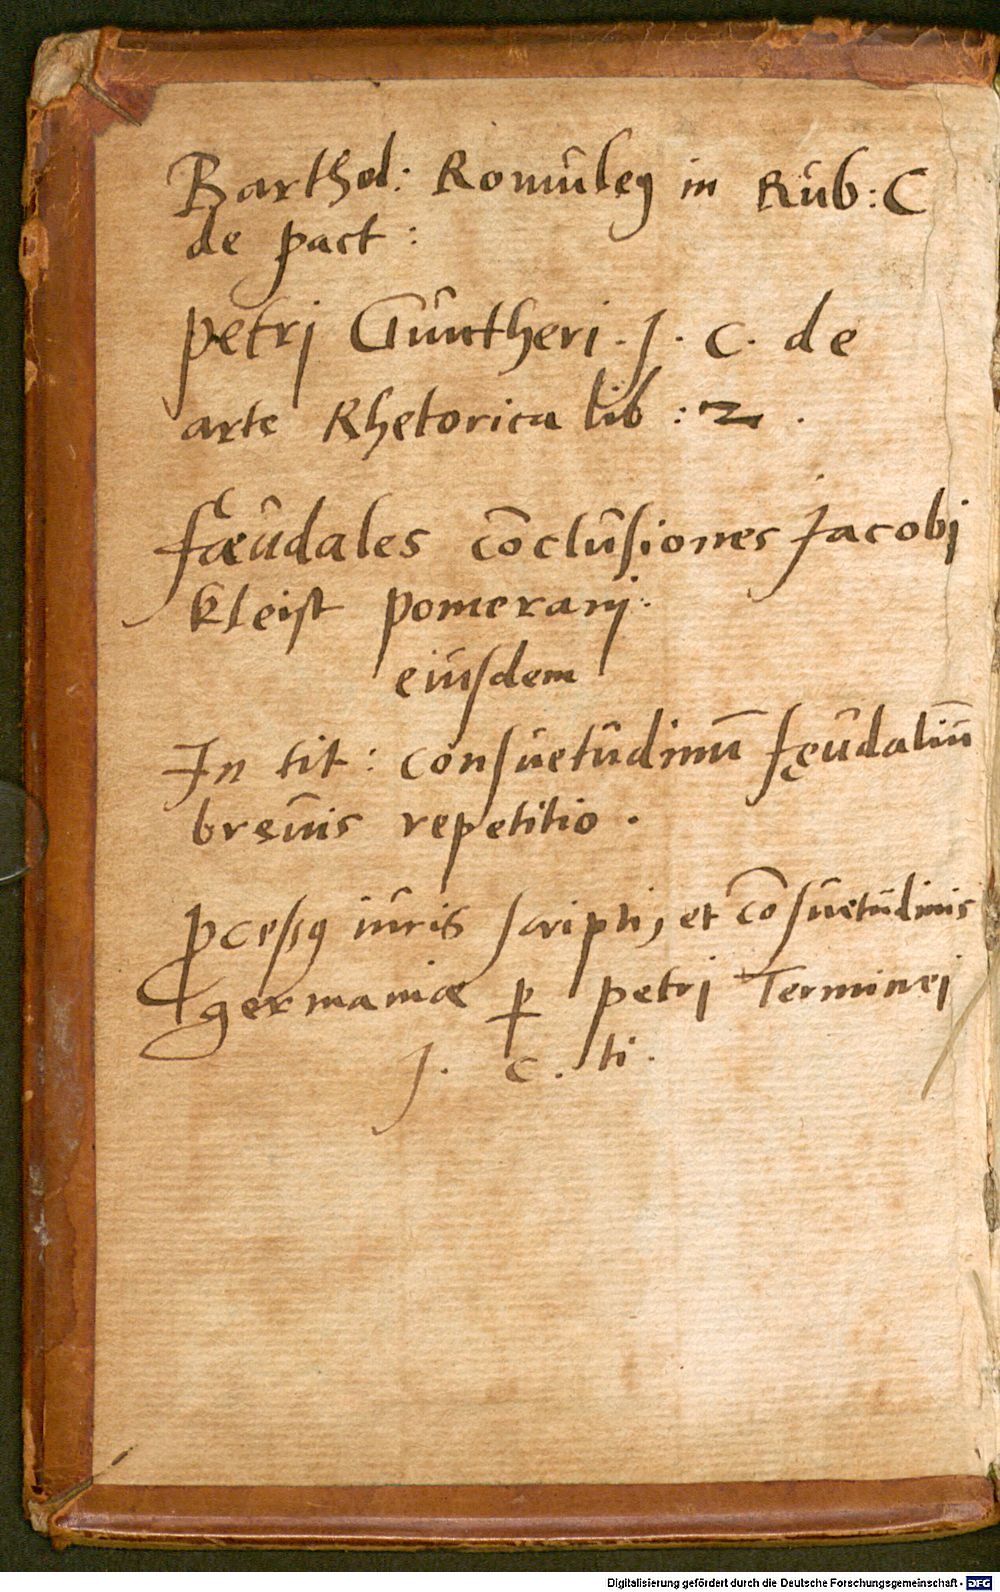 Barthol: Romuleꝯ in Rub: C
de pact:
Petrj Guntheri. J. C. de
arte Rhetorica lib: 2.
Fæudales cōclusiones Jacobi
kleist pomeranj:
eiusdem
In tit: consuetudinū fęudaliū
breuis repetitio.
ꝓcessꝯ iuris scripti, et cōsuetudinis
germaniæ ꝑ petri Terminej
J. C. ti.
Digitalisierung gefördert durch die Deutsche Forschungsgemeinschaft - DFG